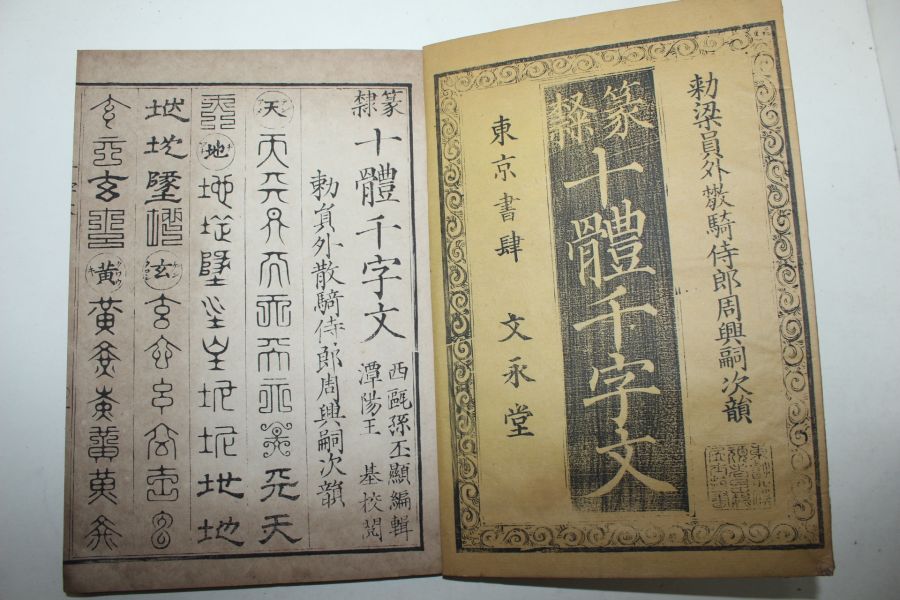 勅梁員外散騎侍郎周興嗣次韻
篆隷十體千字文
東京書肆 文永堂
篆隷十體千字文
西甌孫丕顯編輯
潭陽王 基校閲
勅員外散騎侍郎周興嗣次韻
天天天天天天天天天天天
天地地地墜地地地地地地
地地墜地玄玄玄玄玄玄玄
玄玄玄玄黃黃黃黃黃黃黃